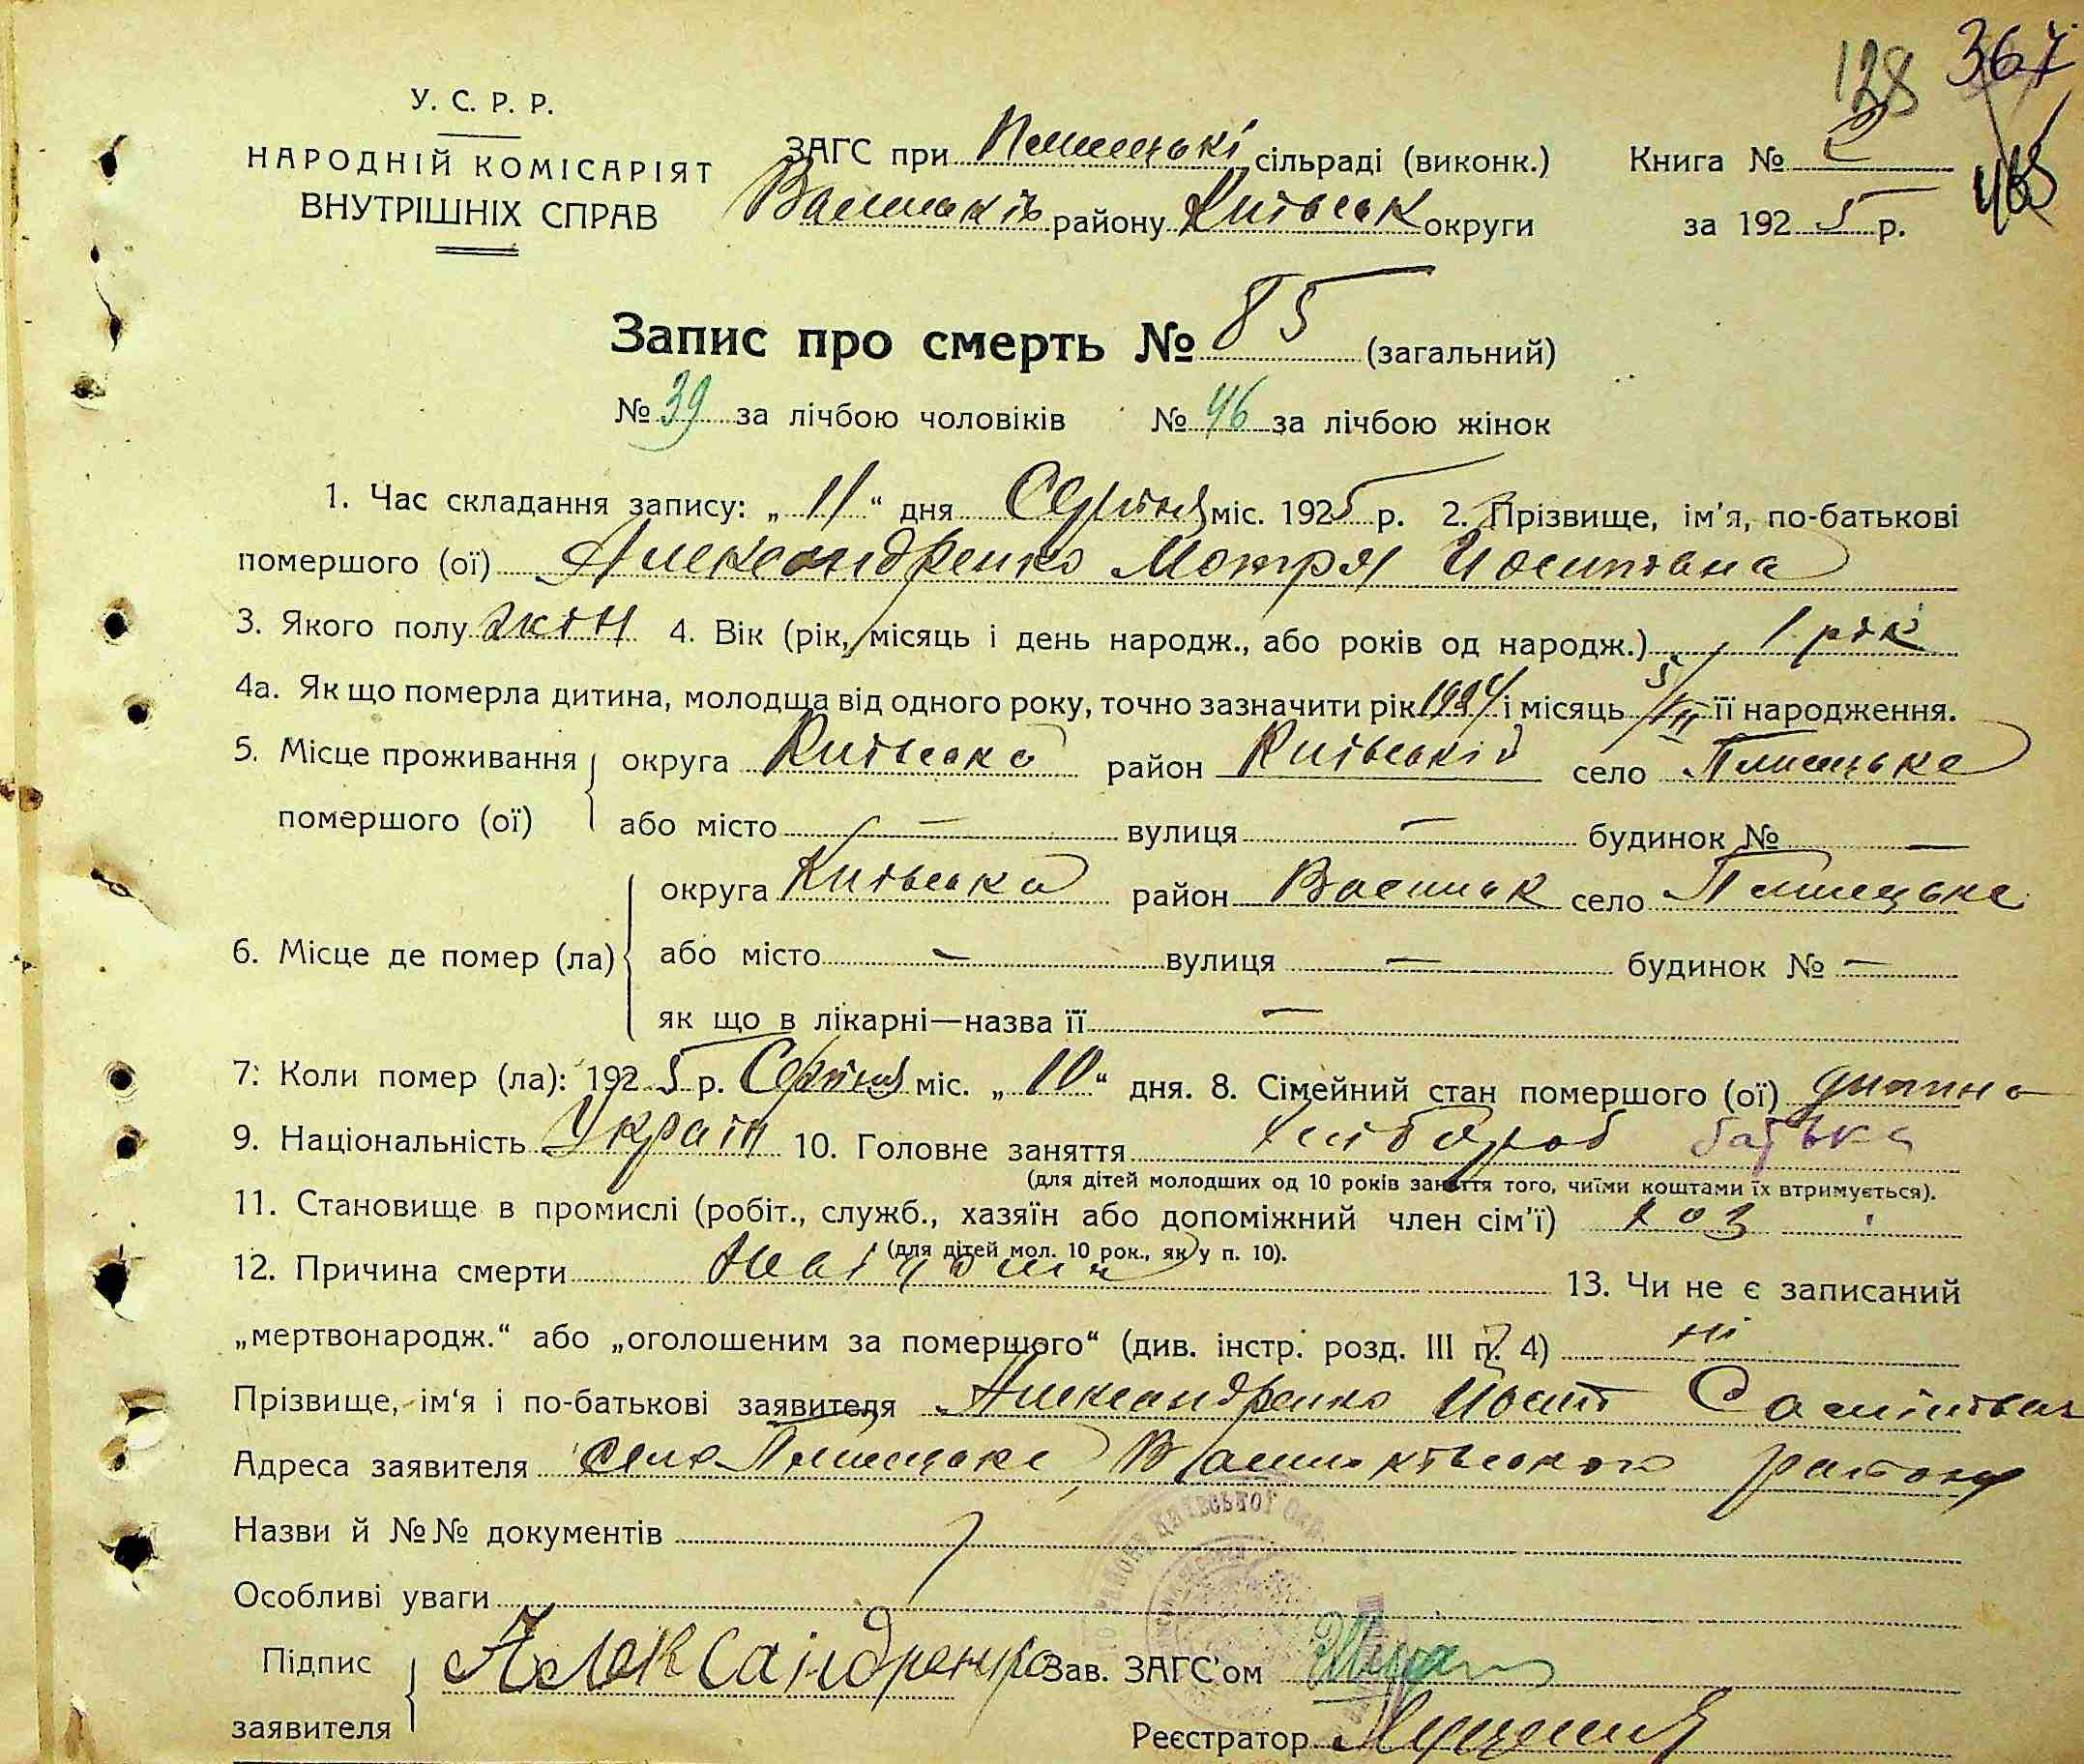 128 367
У. С. Р. Р.
НАРОДНІЙ КОМІСАРІЯТ
ВНУТРІШНІХ СПРАВ
ЗАГС при Плисецькі сільраді (виконк.) Книга № 2
Васильків району Київськ округи за 1925 р.
Запис про смерть № 85 (загальний)
№ 39 за лічбою чоловіків № 46 за лічбою жінок
1. Час складання запису: „11“ дня Серпня міс. 1925 р. 2. Прізвище, ім'я, по-батькові
помершого (ої) Александренко Мотря Йосипівна
3. Якого полу жін 4. Вік (рік, місяць і день народж., або років од народж.) 1 рік
4а. Як що померла дитина, молодша від одного року, точно зазначити рік 1924 і місяць її народження.
5. Місце проживання округа Київська район Київський село Плисецьке
помершого (ої) або місто — вулиця — будинок № —
округа Київська район Васильк село Плисецьке
6. Місце де помер (ла) або місто — вулиця — будинок № —
як що в лікарні—назва її —
7. Коли помер (ла): 1925 р. Серпня міс. „10“ дня. 8. Сімейний стан помершого (ої) дитина
9. Національність Україн 10. Головне заняття хлібороб батька
(для дітей молодших од 10 років заняття того, чиїми коштами їх втримується).
11. Становище в промислі (робіт., служб., хазяїн або допоміжний член сім'ї) хоз
(для дітей мол. 10 рок., як у п. 10).
12. Причина смерти 13. Чи не є записаний
„мертвонародж.“ або „оголошеним за помершого“ (див. інстр. розд. III п. 4) ні
Прізвище, ім'я і по-батькові заявителя Александренко Йосип
Адреса заявителя село Плисецьке, Васильківського району
Назви й №№ документів
Особливі уваги
Підпис заявителя Александренко Зав. ЗАГС'ом
Реєстратор